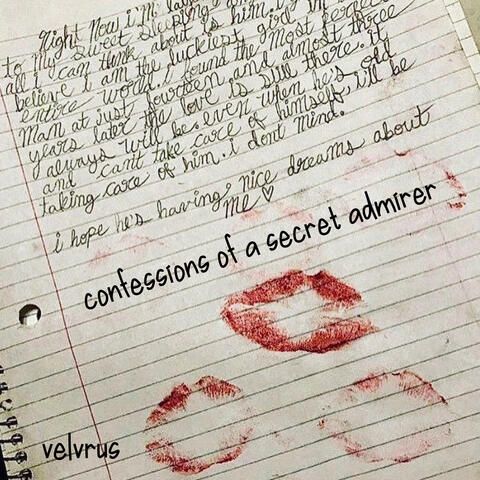 Right Now i'm
to my sweet sleeping
all i can think about is him. i
believe i am the luckiest girl in
entire world. i found the most perfect
man at just fourteen and almost three
years later the love is still there. it
always will be. even when he's old
and cant take care of himself, i'll be
taking care of him. i dont mind.
i hope he's having nice dreams about
me ♡
confessions of a secret admirer
velvrus